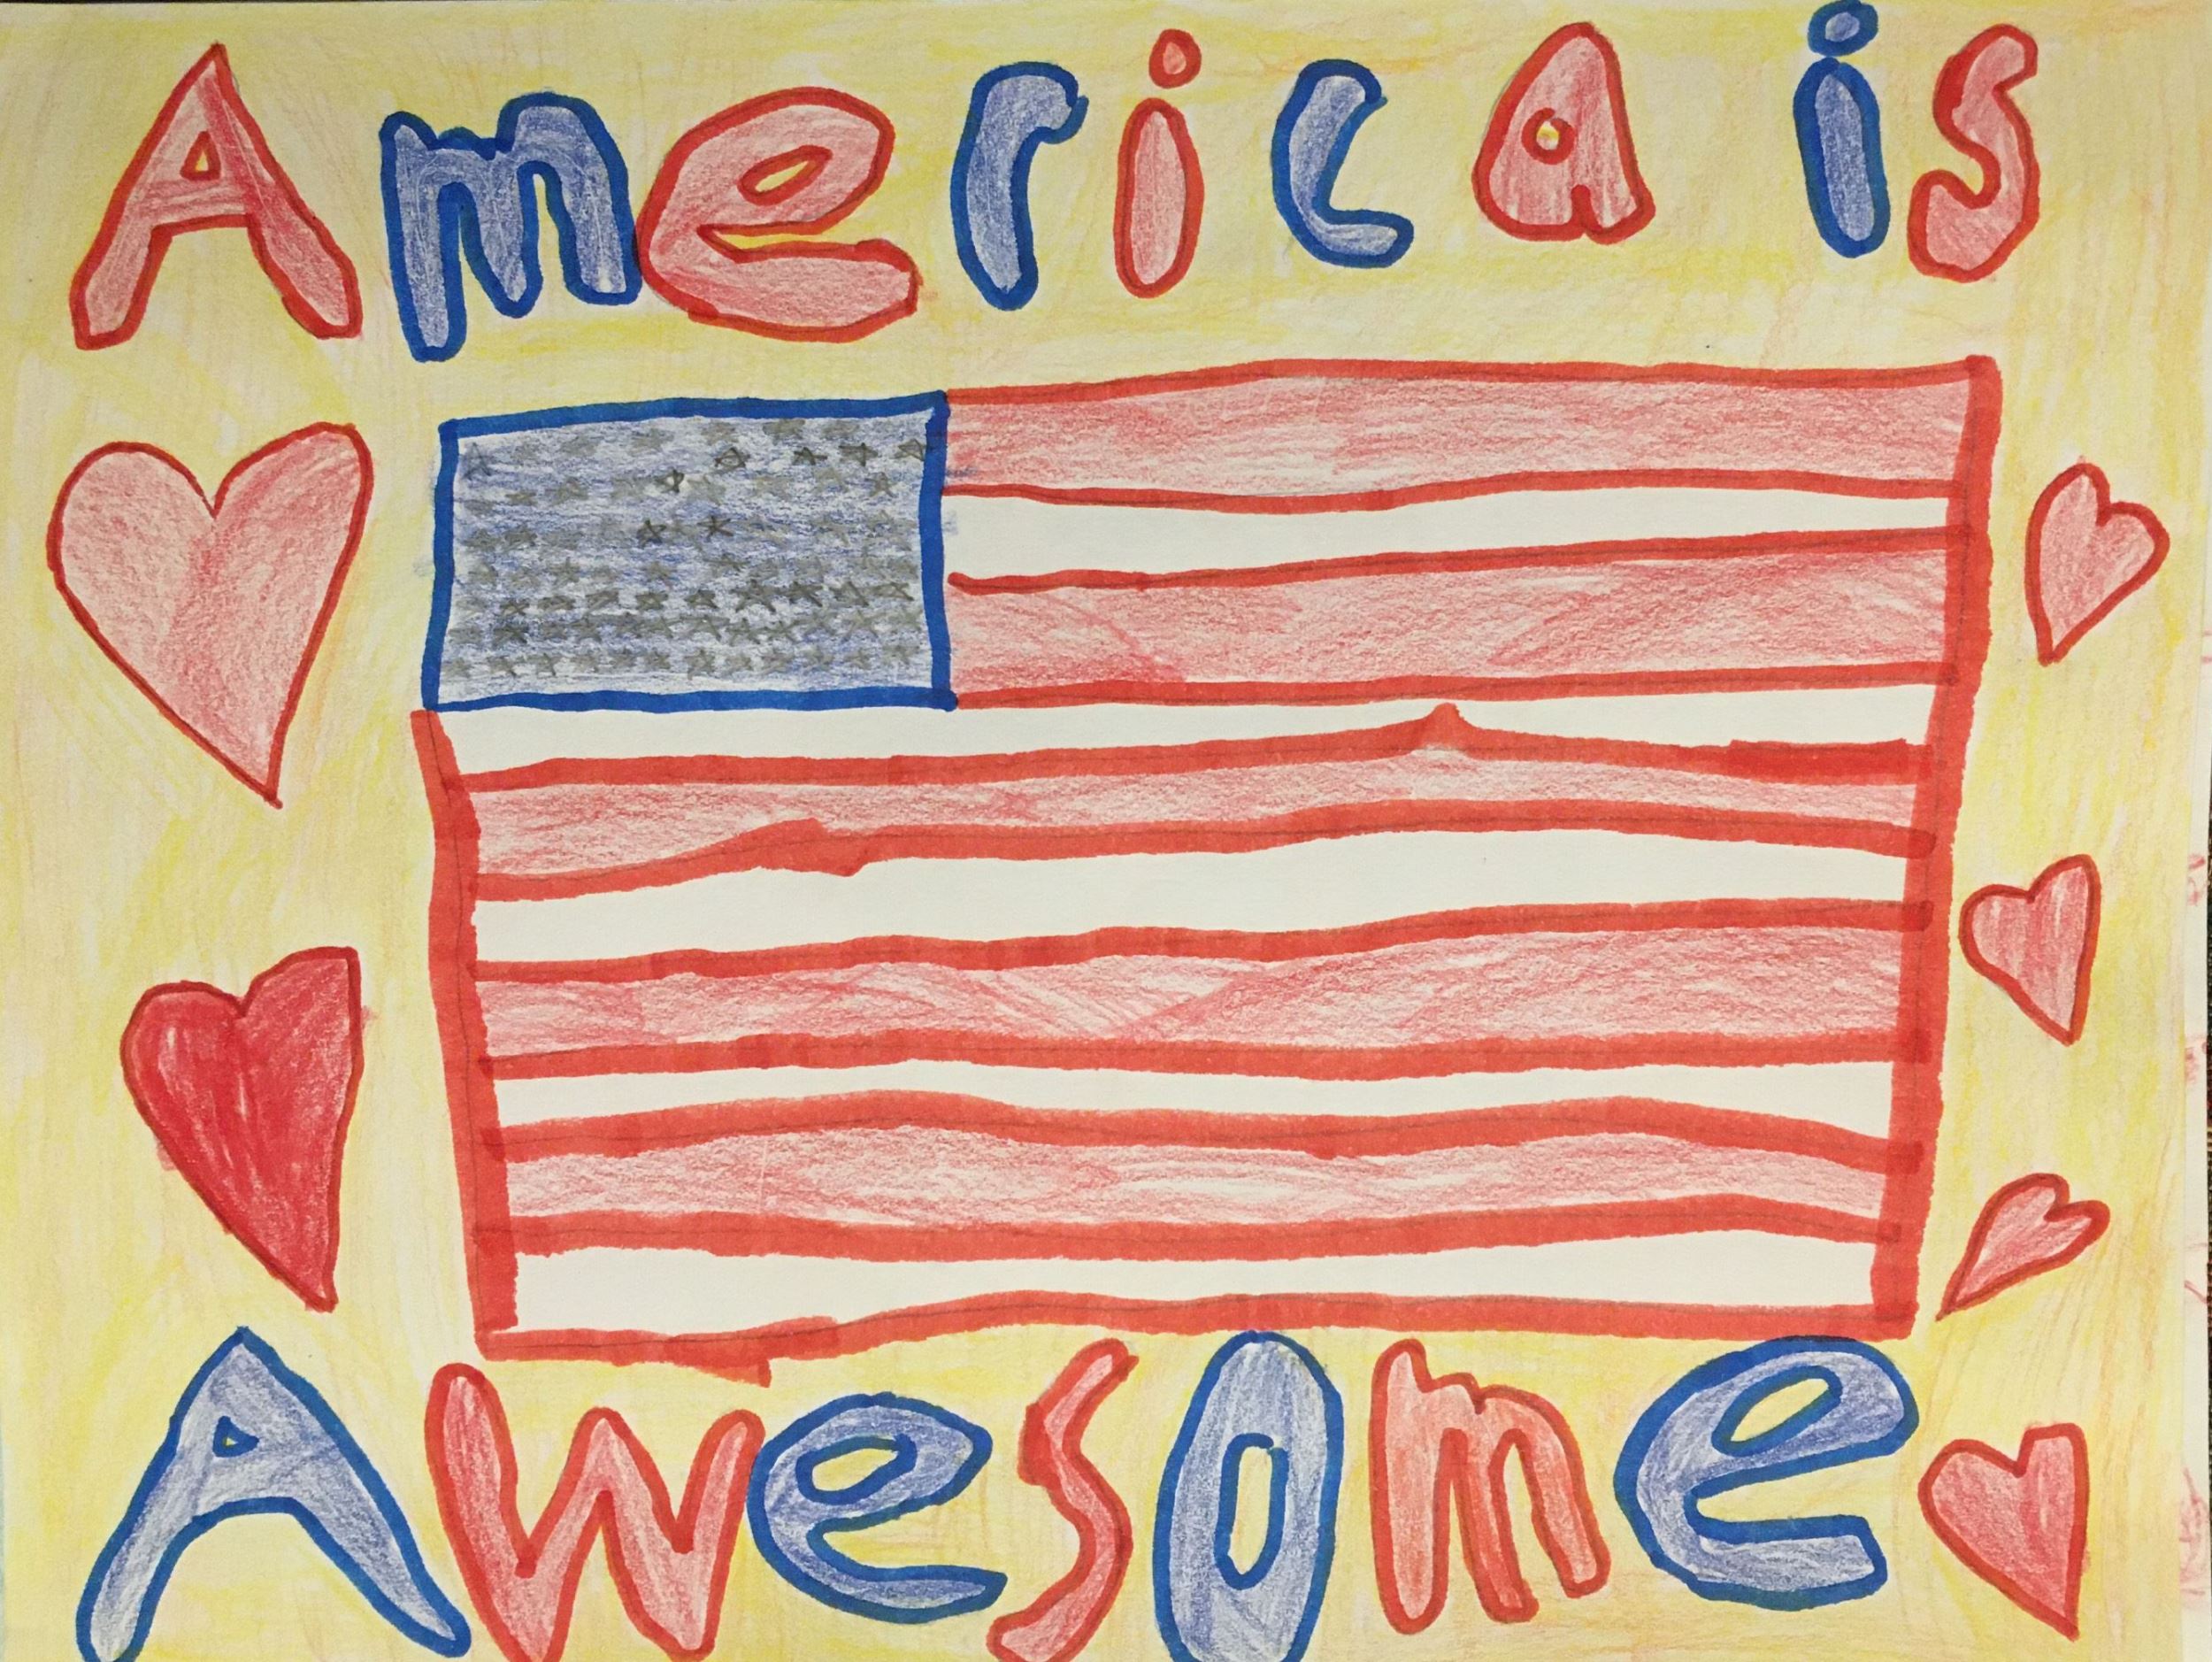 America is
Awesome